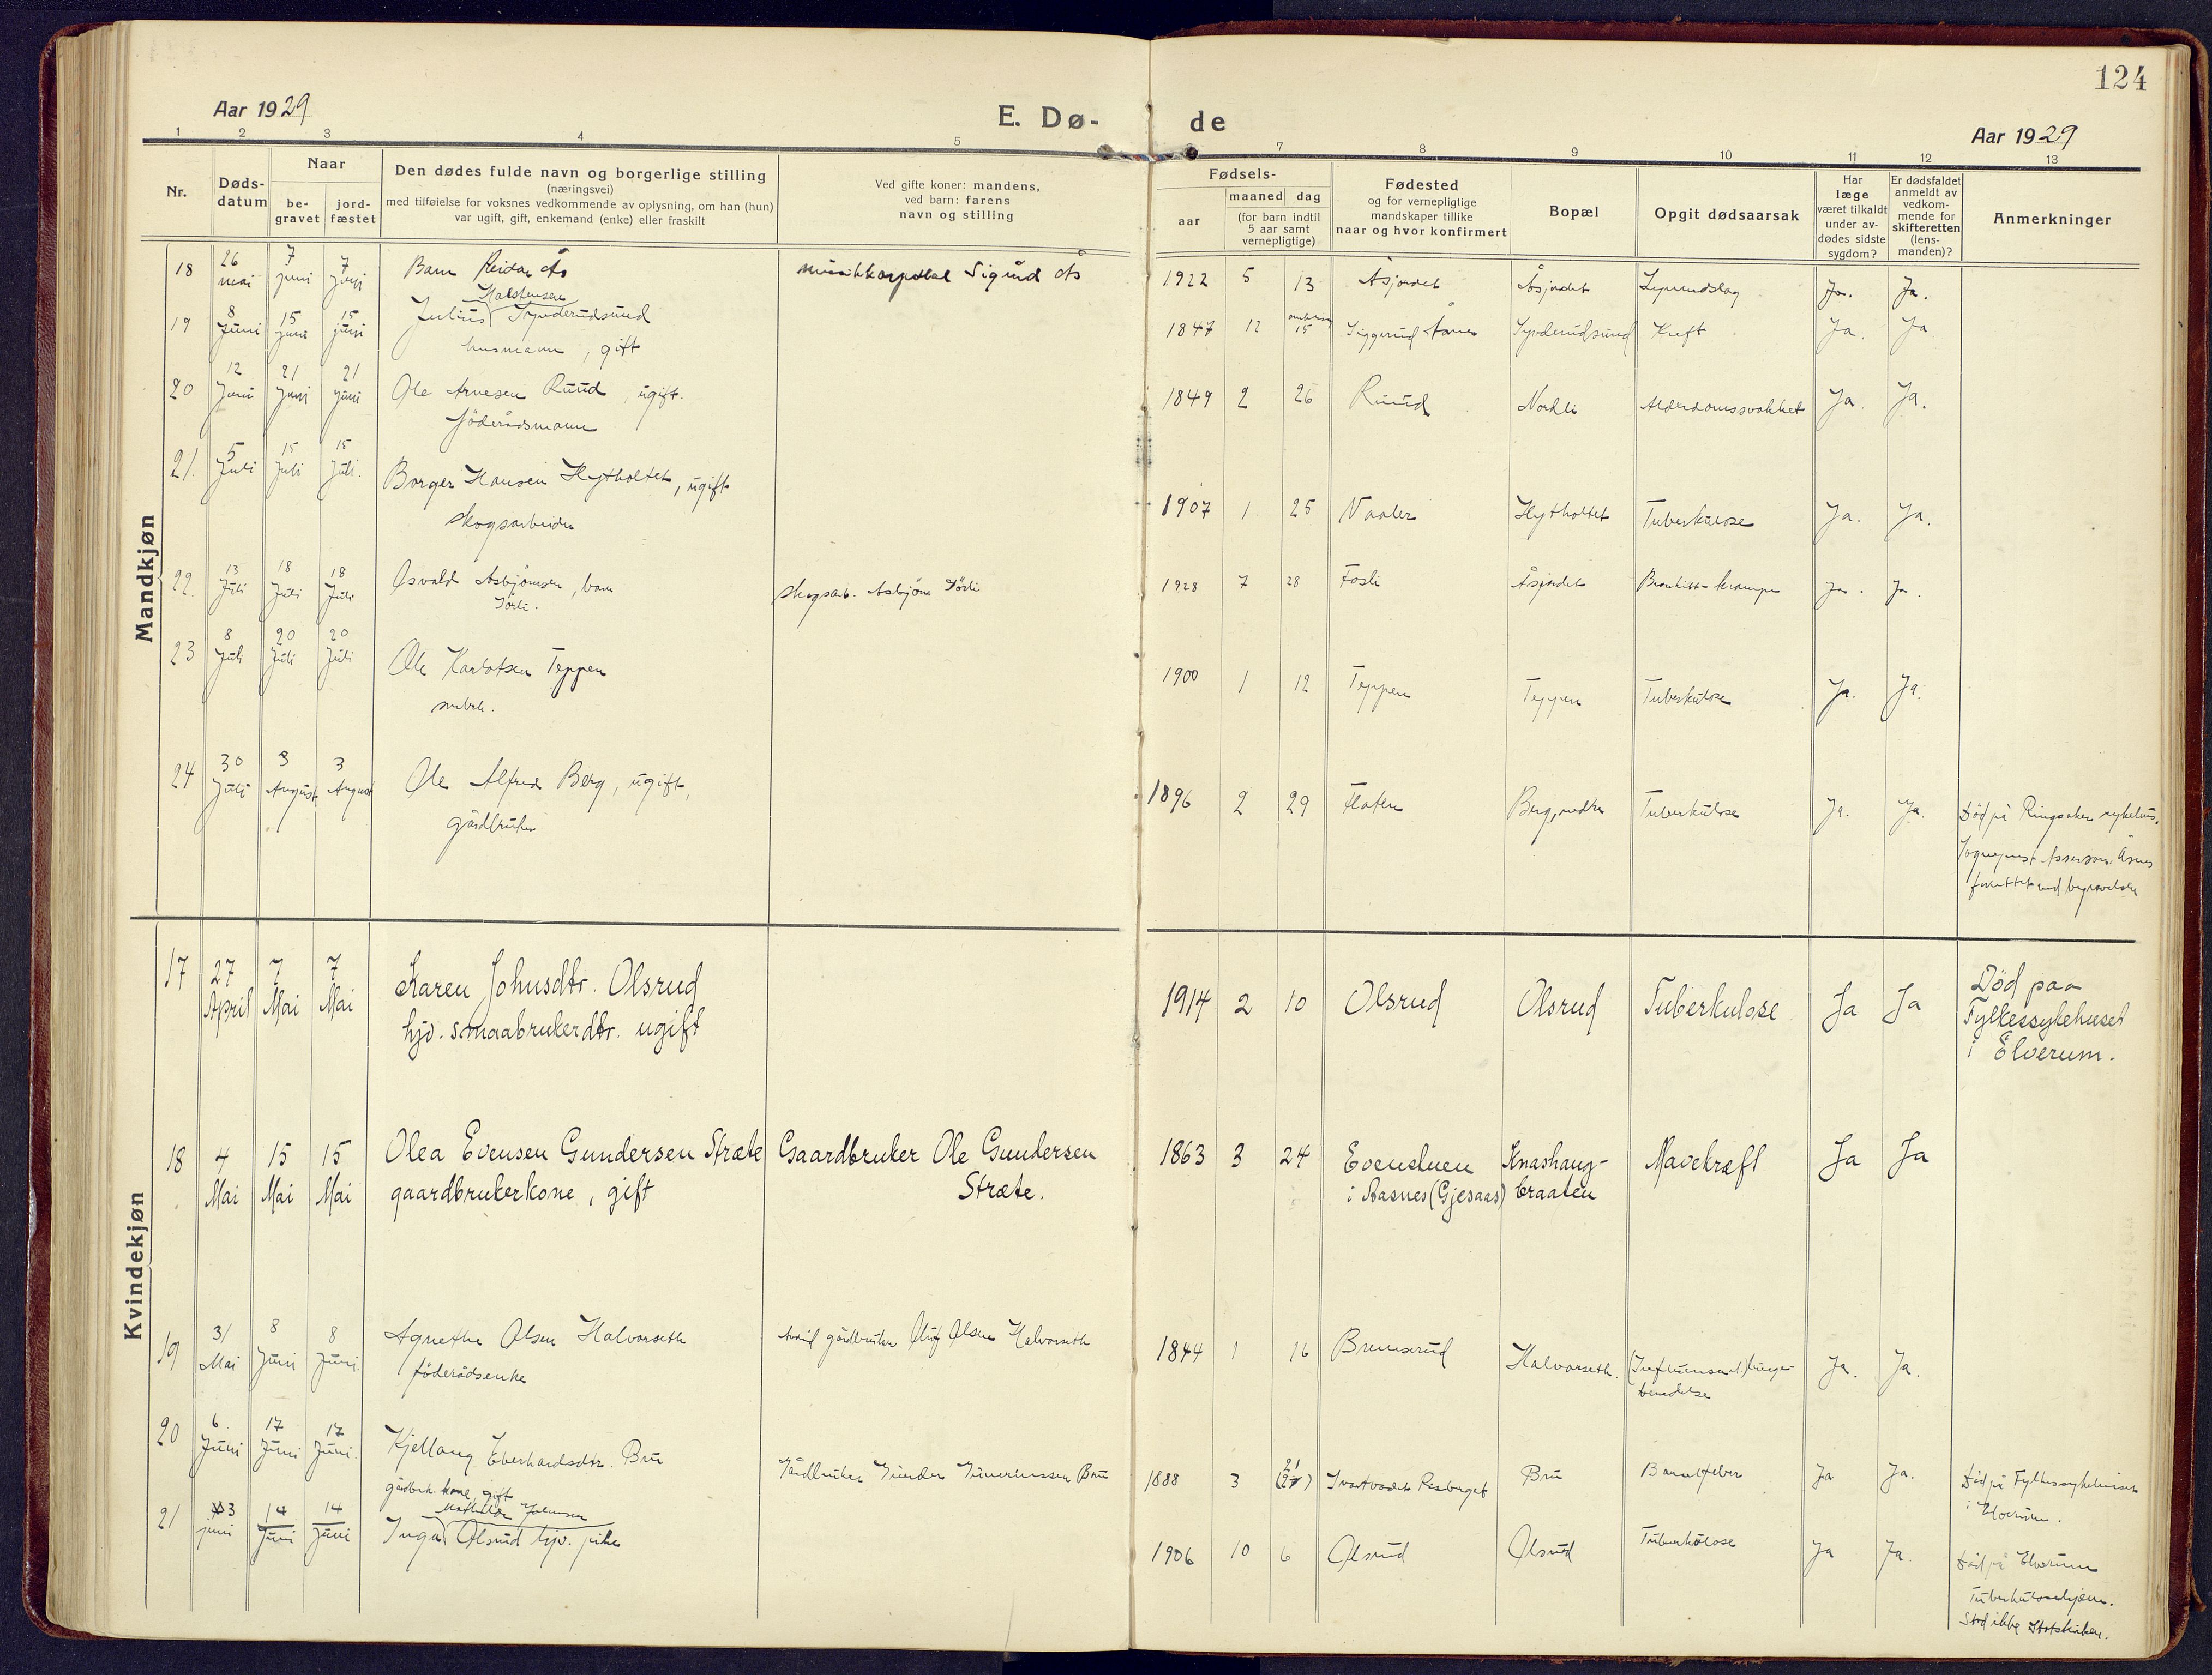 124
Aar 1929
E. Dø-
de
Aar 1929
1 2 3 4 5 7 8 9 10 11 12 13
Nr.
Døds-
datum
Naar
be-
gravet
jord-
fæstet
Den dødes fulde navn og borgerlige stilling
(næringsvei)
med tilføielse for voksnes vedkommende av oplysning, om han (hun)
var ugift, gift, enkemand (enke) eller fraskilt
Ved gifte koner: mandens,
ved barn: farens
navn og stilling
Fødsels-
aar
maaned dag
(for barn indtil
5 aar samt
vernepligtige)
Fødested
og for vernepligtige
mandskaper tillike
naar og hvor konfirmert
Bopæl
Opgit dødsaarsak
Har
læge
været tilkaldt
under av-
dødes sidste
sygdom?
Er dødsfaldet
anmeldt av
vedkom-
mende for
skifteretten
(lens-
manden)?
Anmerkninger
Mandkjøn
18 26 mai 7 juni 7 juni Barn Reidar Ås Sigurd Ås 1922 5 13 Åsjordet Åsjordet Ja. Ja.
Halstensen
19 8 Juni 15 juni 15 juni Julius Synderudsund 1847 12 15 Synderudsund Kreft Ja. Ja
husmann, gift
20 12 Juni 21 juni 21 juni Ole Arnesen Ruud, ugift. 1849 2 26 Ruud Nordli Alderdomssvakhet Ja. Ja.
föderådsmann
21. 5 Juli 15 Juli 15 Juli. Borger Hansen Hytholtet, ugift 1907 1 25 Vaaler Hytholtet Tuberkulose Ja. Ja.
skogsarbeider
22. 13 Juli 18 Juli 18 Juli Osvald Asbjörnsen, barn skogsarb. Asbjörn 1928 7 28 Fosli Åsjordet Ja. Ja.
23 8 Juli 20 Juli 20 Juli Ole Karlotsen Teppen 1900 1 12 Teppen Teppen Tuberkulose Ja. Ja.
24 30 Juli 3 August 3 August Ole Alfred Berg, ugift, 1896 2 29 Flaten Berg, nedre Tuberkulose Ja. Ja. Död på Ringsaker sykehus.
gårdbruker
Sogneprest Asserson Åsnes
forrettet ved begravelse
Kvindekjøn
17 27 April 7 Mai 7 Mai Karen Johusdtr. Olsrud 1914 2 10 Olsrud Olsrud Tuberkulose Ja Ja Död paa
hjv. smaabrukerdtr. ugift
Fylkessykehuset
i Elverum.
18 4 Mai 15 Mai 15 Mai Olea Evensen Gundersen Stræte Gaardbruker Ole Gundersen 1863 3 24 Evenstuen Knashaug- Mavekræft Ja Ja
gaardbrukerkone, gift Stræte. i Aasnes (Gjesaas) braaten
19 31 Mai 8 Juni 8 Juni. Agnethe Olsen Halvorseth gårdbruker Oluf Olsen Halvorseth 1844 1 16 Bremsrud Halvorseth. Ja. Ja.
föderådsenke
20 6 Juni 17 Juni 17 Juni. Kjellaug Eberhardsdtr. Bru Gårdbruker Gunder Guneriussen Bru 1888 3 21 Bru Barselfeber Ja Ja. Död på Fylkessykehuset
gårdbr. kone, gift
i Elverum.
Mathilde Johnsen
21 3 juni 14 Juni 14 Juni Inga Olsrud hjv. pike 1906 10 6 Olsrud Olsrud Tuberkulose Ja Ja. Död på Elverum
Tuberkulosehjem.
Stod ikke i Statskirken.